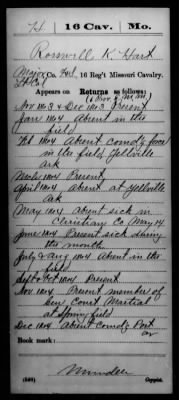 H | 16 Cav. | Mo.
Roswell K. Hart
Major, Co. F&S, 16 Reg't Missouri Cavalry.
Lt Col
Appears on Returns as follows:
Nov 1863 & Dec 1863 Present
Jany 1864 Absent in the
field
Feb 1864 Absent comdg force
in the field, Yellville
Ark
Mch 1864 Present
April 1864 Absent at Yellville
Ark
May 1864 Absent sick in
Christian Co May 14
June 1864 Present sick during
the month
July & Aug 1864 Absent in the
field
Sept & Oct 1864 Present
Nov 1864 Present member of
Gen Court Martial
at Springfield
Dec 1864 Absent comdg Post
Book mark:
(546)
Copyist.